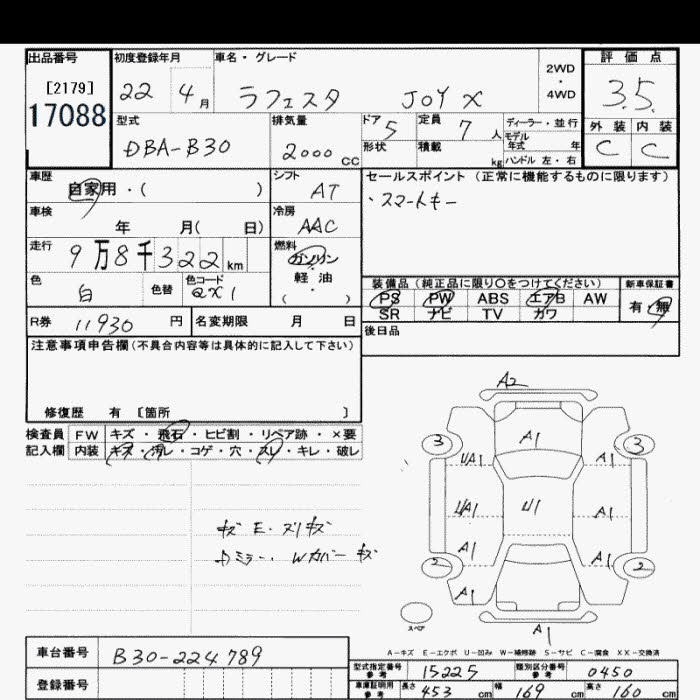 出品番号 初度登録年月 車名・グレード 2WD・4WD 評価点
[2179] 22 4月 ラフェスタ JOY X 3.5
17088
型式 排気量 ドア 5 定員 7人 ディーラー・並行 外装 内装
DBA-B30 2000cc 形状 積載 kg モデル年式 年 ハンドル 左・右 C C
車歴 自家用・( ) シフト AT セールスポイント (正常に機能するものに限ります)
車検 年 月( 日) 冷房 AAC ・スマートキー
走行 9万8千322km 燃料 ガソリン・軽油・( )
色 白 色替 色コード QX1
装備品 (純正品に限り○をつけてください) 新車保証書
PS PW ABS エアB AW 有・無
SR ナビ TV カワ
R券 11930円 名変期限 月 日 後日品
注意事項申告欄(不具合内容等は具体的に記入して下さい)
修復歴 有 〔箇所 〕
検査員 FW キズ・飛石・ヒビ割・リペア跡・×要
記入欄 内装 キズ・汚レ・コゲ・穴・スレ・キレ・破レ
キズE・スリキズ
ミラー・Wカバーキズ
A2
A1
3 3
UA1 A1
UA1 U1 A1
A1 A1
2 2
A1
スペア
A1
A-キズ E-エクボ U-凹み W-補修跡 S-サビ C-腐食 XX-交換済
車台番号 B30-224789
登録番号
型式指定番号 参考 15225 類別区分番号 参考 0450
車庫証明用 参考 長さ 453cm 幅 169cm 高さ 160cm